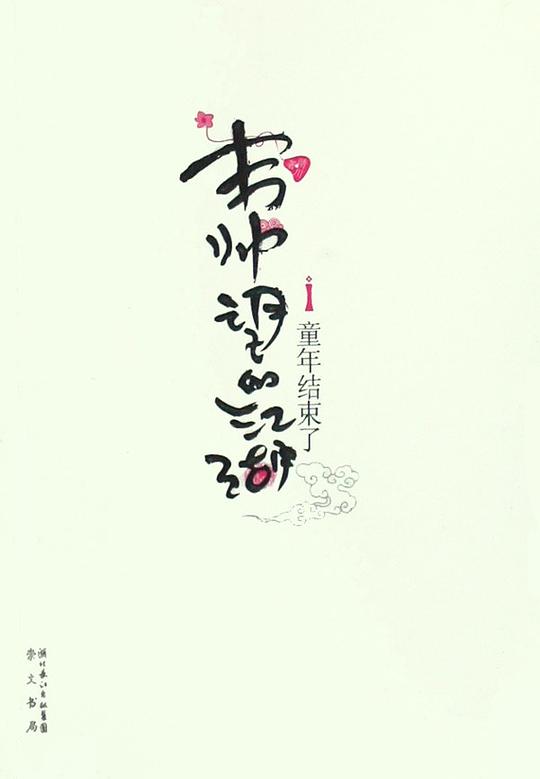 韦帅望的江湖
i
童年结束了
湖北长江出版集团
崇文书局